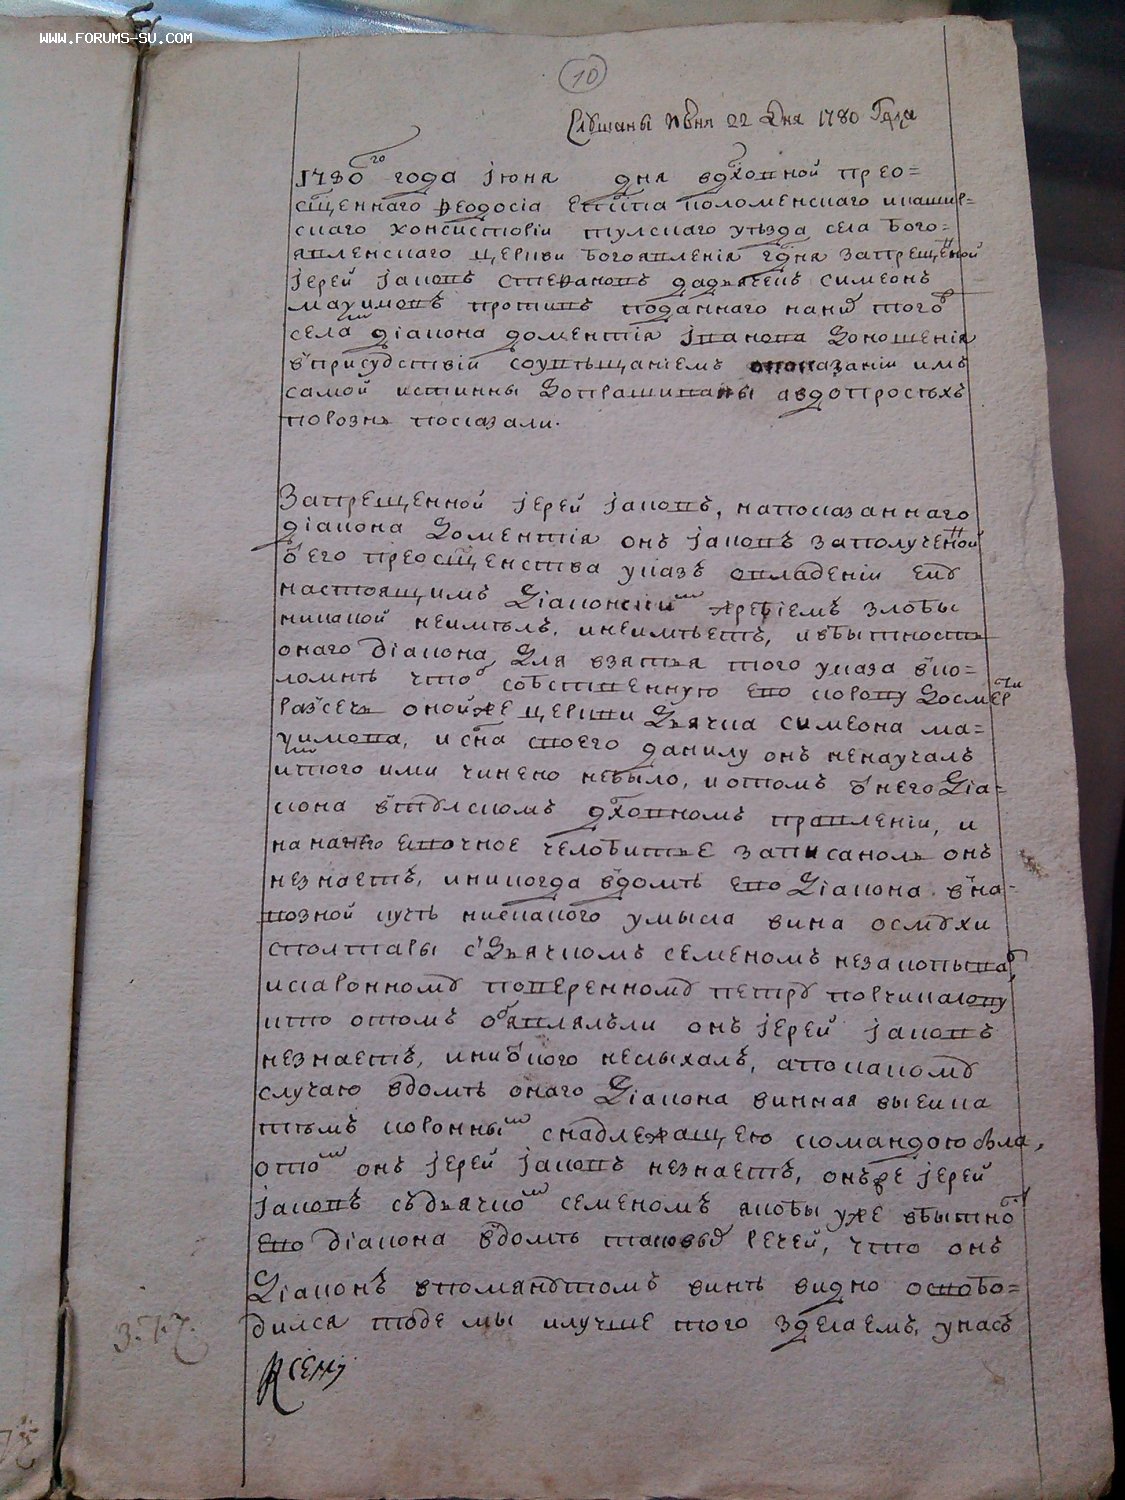 WWW.FORUMS-SU.COM
10
Слушаны июня 22 дня 1780 Года
1780го года июня дня вдховной прео=
сщеннаго Феодосїа Епспа коломенскаго икашир=
скаго консисторїи тулскаго уѣзда села Бого=
явленскаго церкви Богоявленїя гдня запрещенной
їерей їаковъ стефановъ дадьячекъ симеонъ
маѯимовъ противъ поданнаго нанихъ тогоѣ
села дїакона доментїя їванова доношенїя
вприсудствїи соувѣщанїемъ опоказанїи имъ
самой истинны допрашиваны авдопросѣхъ
порознь показали.
Запрещенной їерей їаковъ, напоказаннаго
дїакона Доментїя онъ їаковъ заполученной
Ѿего преосщенства указъ овладенїи ему
настоящимъ Дїаконскимъ жребїемъ злобы
никакой неимѣлъ, инеимѣетъ, ивбытность
онаго дїакона для взятья того указа вко=
ломнѣ чтоб собственную ево корову досмерти
разсечь онойже церкви Дьячка симеона ма=
ѯимова, исна своего данилу онъ ненаучалъ
итого ими чинено небыло, иотомъ Ѿнего Дїа=
кона втулскомъ дховномъ правленїи, и
наначно явочное челобитье записаноль онъ
незнаетъ, иникогда вдомѣ ево Дїакона вна=
возной кучѣ никакого умысла вина осмухи
столтары сДьячкомъ семеномъ незакопыва,
искаронному поверенному петру
кто отомъ объявлялъли онъ їерей їаковъ
незнаетъ, иниѾкого неслыхалъ, апокакому
случаю вдомѣ онаго Дїакона винная выемка
тѣмъ коронным снадлежащею командою была,
отом онъ їерей їаковъ незнаетъ, онъже їерей
їаковъ съдьячком семеномъ якобы уже вбытноѣ
ево дїакона вдомѣ таковых речей, что онъ
Дїаконъ впомянутомъ винѣ видно освобо=
дился тоде мы илучше того зделаемъ, унасъ